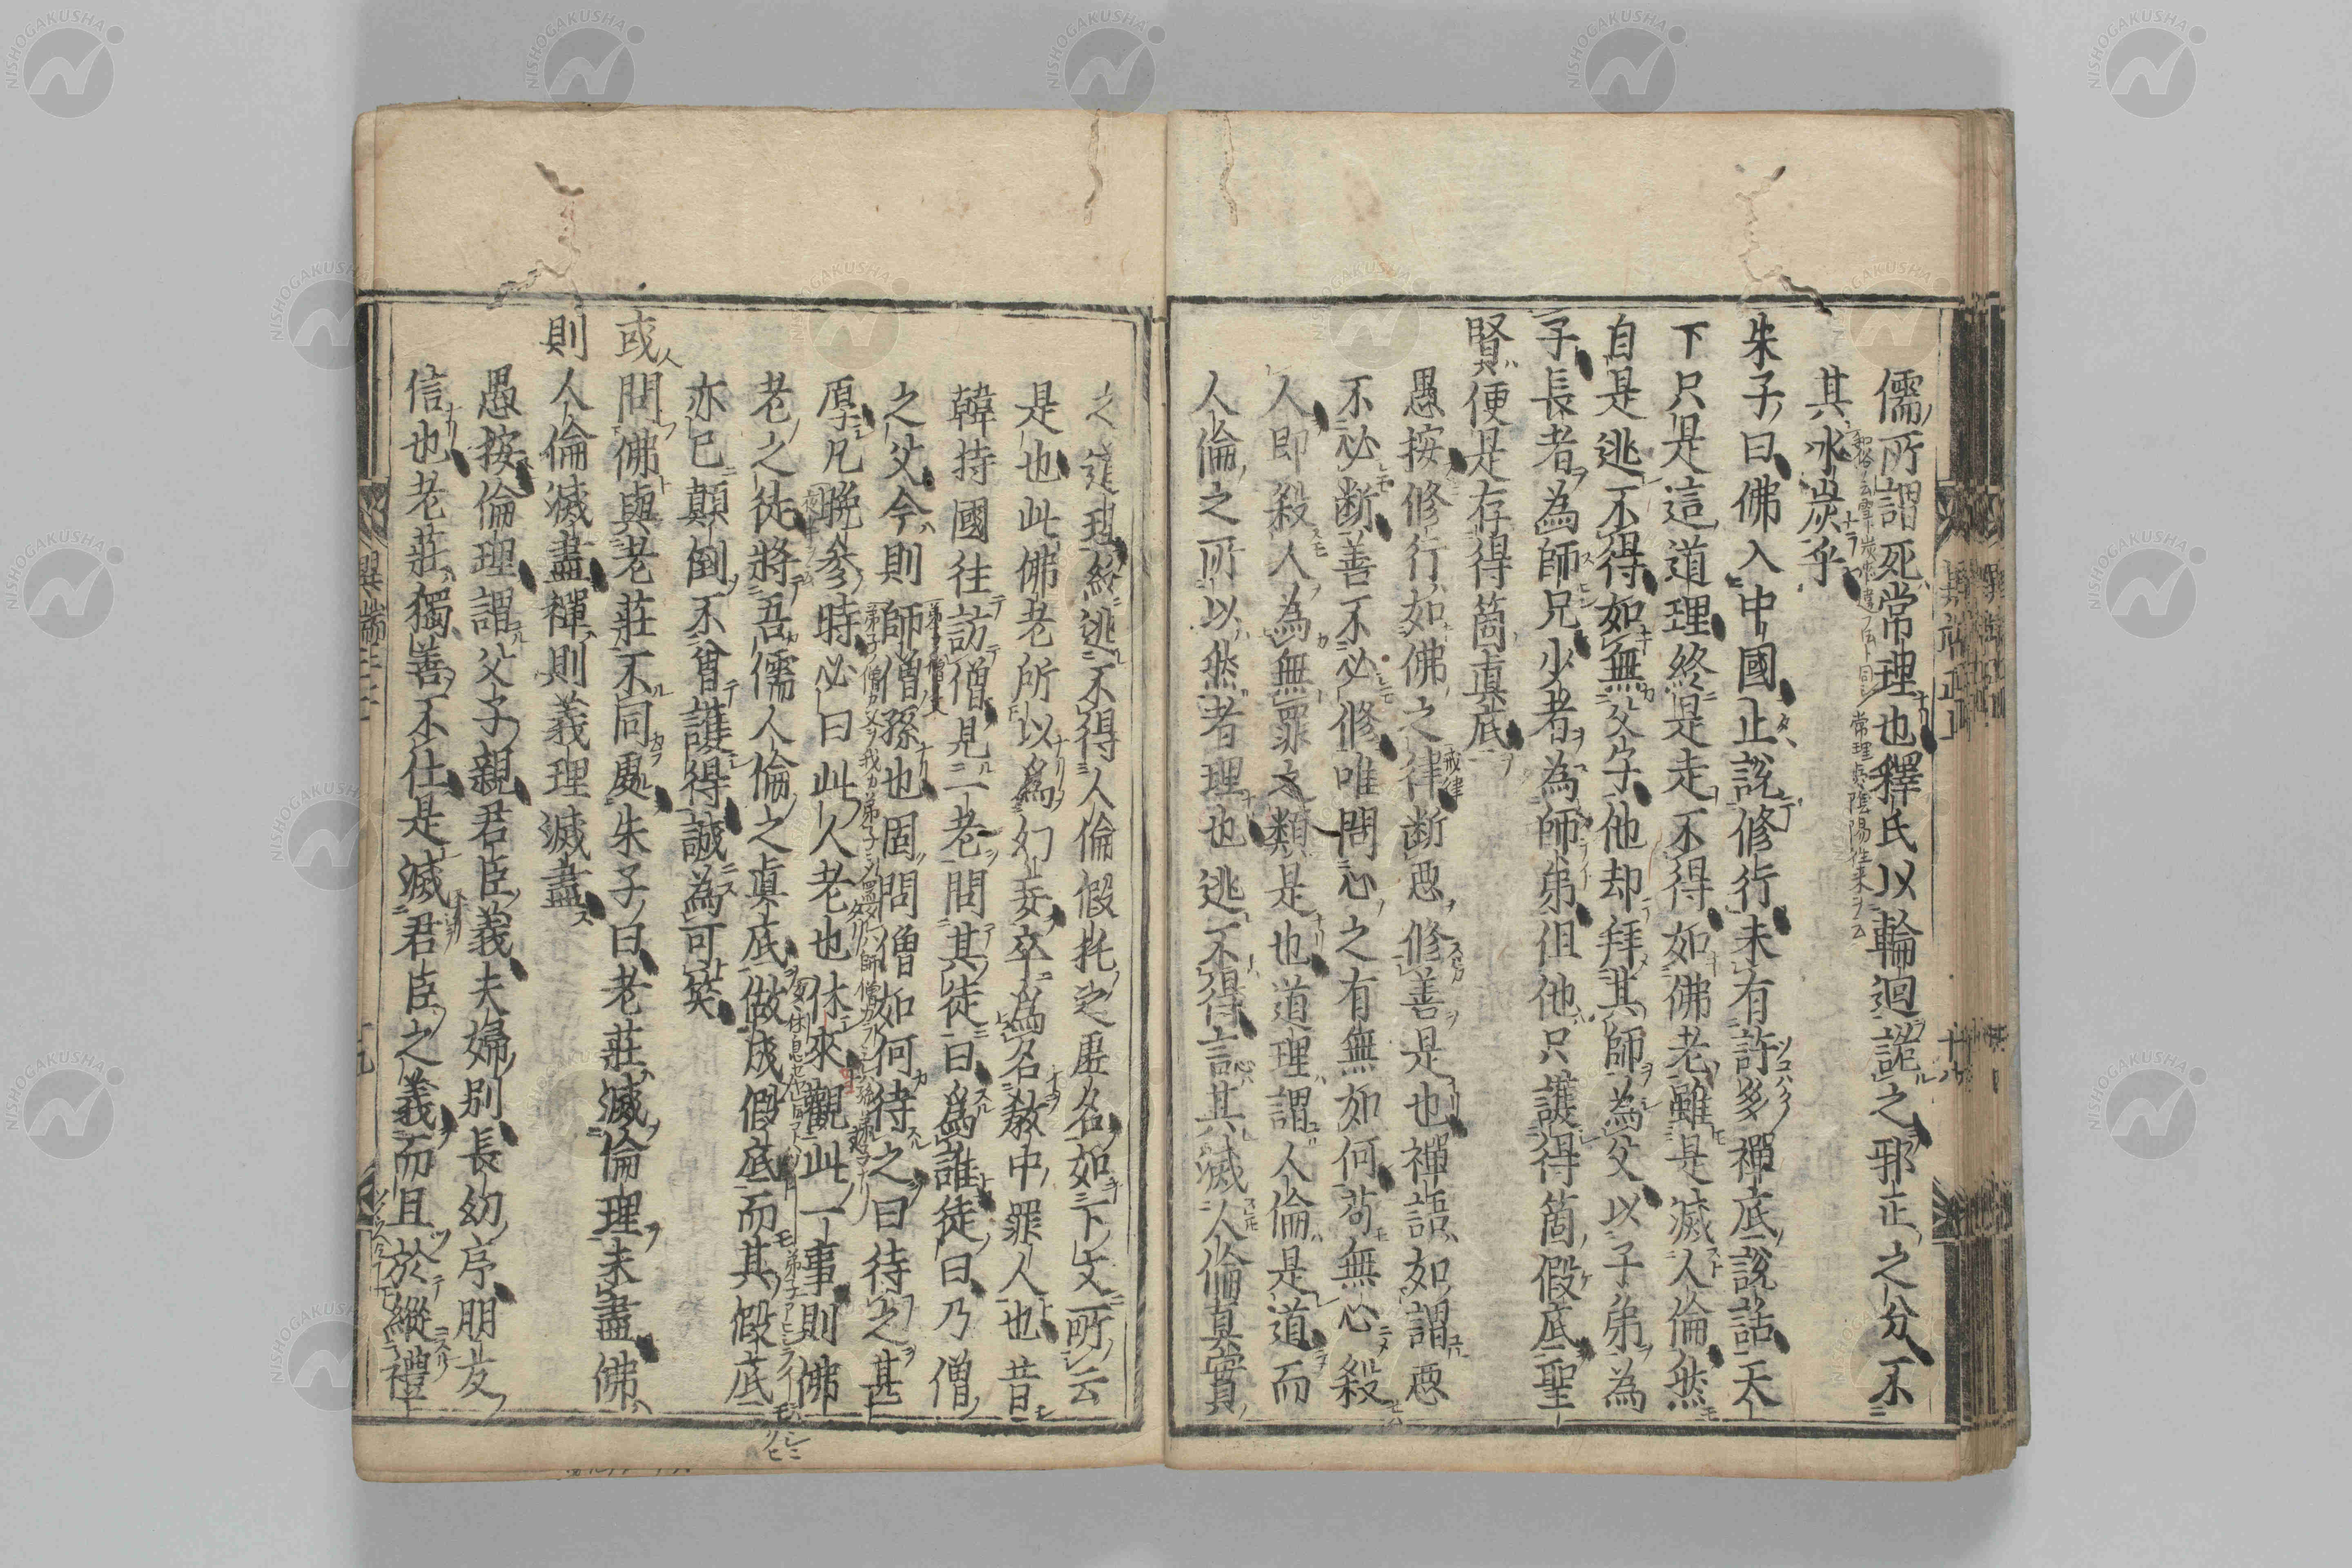 儒所謂死常理也釋氏以輪迴誑之邪正之分不
其冰炭乎
朱子曰佛入中國止說修行未有許多禪底說話天
下只是這道理終是走不得如佛老雖是滅人倫然
自是逃不得如無父子他却拜其師為父以子弟為
子長者為師兄少者為師弟但他只護得箇假底聖
賢便是存得箇真底
愚按修行如佛之律断惡修善是也禪語如謂惡
不必断善不必修唯問心之有無如何苟無心殺
人即殺人為無罪之類是也道理謂人倫是道而
人倫之所以然者理也逃不得言其滅人倫真實
之道理終逃不得人倫假託之虛名如下文所云
是也此佛老所以為幻妄卒為名教中罪人也昔
韓持國往訪僧見二老問其徒曰為誰徒曰乃僧
之父今則師僧孫也因問僧如何待之曰待之甚
厚凡晚參時必曰此人老也休來觀此一事則佛
老之徒將吾儒人倫之真底做成假底而其假底
亦已顛倒不曾護得誠為可笑
或問佛與老莊不同處朱子曰老莊滅倫理未盡佛
則人倫滅盡禪則義理滅盡
愚按倫理謂父子親君臣義夫婦別長幼序朋友
信也老莊獨善不仕是滅君臣之義而且於縱禮
戒律
異端
NISHOGAKUSHA